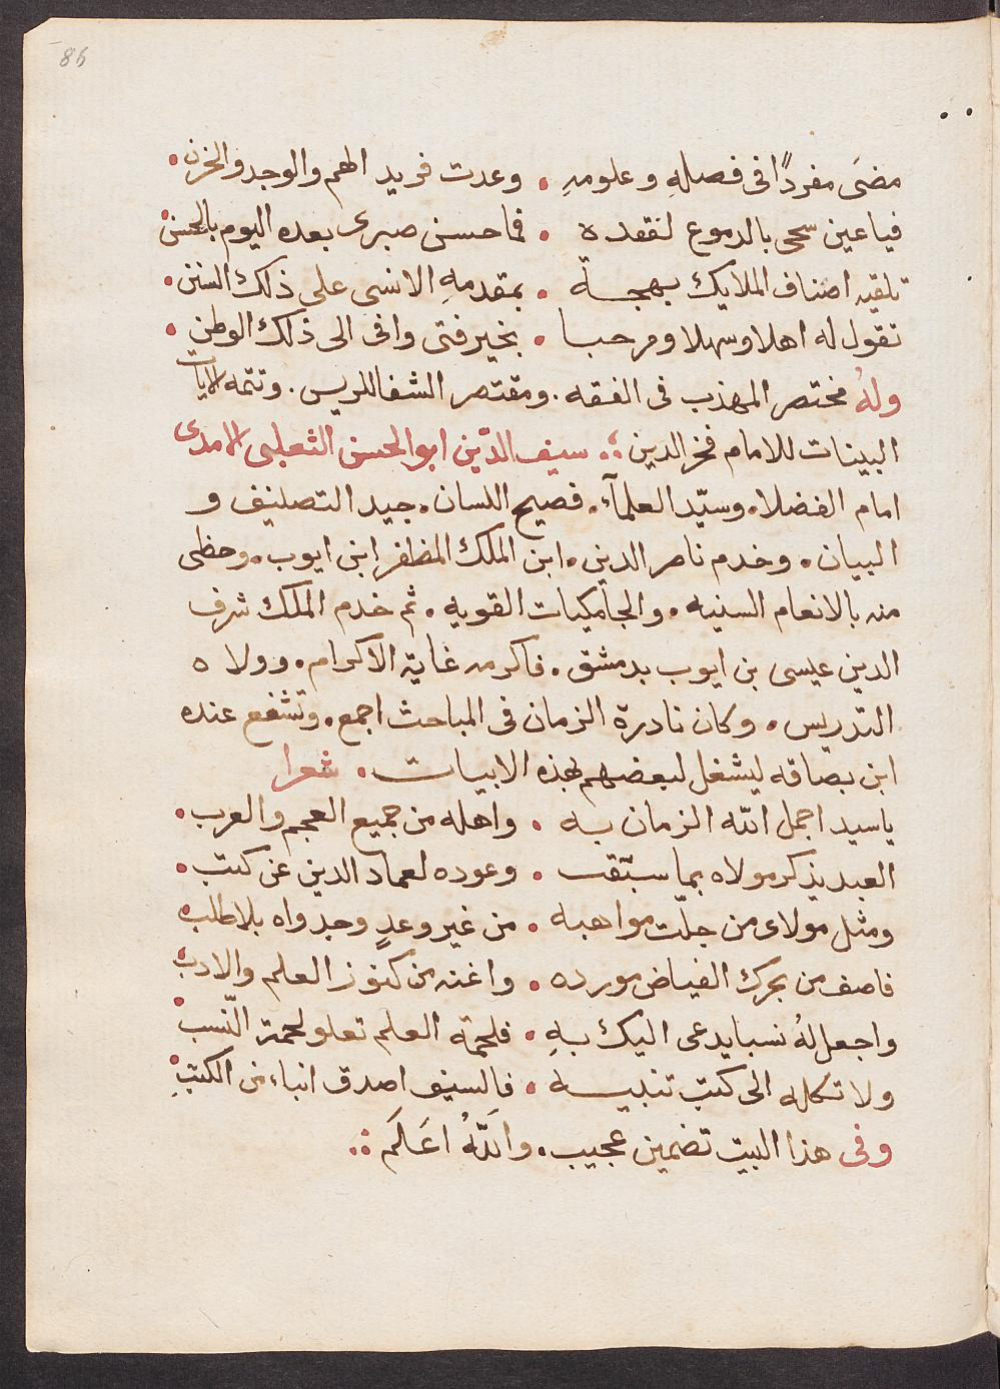 86
مضَى مفردًا فى فصلهِ وعلومهِ • وعدت فريد الهم والوجد والحزن •
فيا عين سحى بالدموع لفقده • فما حسن صبرى بعده اليوم بالحسن •
تلقيه اصناف الملايك بهجة • بمقدمهِ الانسى على ذلك السنن •
تقول له اهلا وسهلا ومرحبا • بخير فتى وافى الى ذلك الوطن •
ولهُ مختصر المهذب فى الفقه . ومقتصر الشفا للريس . وتتمه الايات
البينات للامام فخر الدين ؛ سيف الدّين ابو الحسن الثعلبى الامدى
امام الفضلا • وسيّد العلمآء • فصيح اللسان • جيد التصنيف و
البيان • وخدم ناصر الدين • ابن الملك المظفر ابن ايوب • وحظى
منه بالانعام السنيه • والجامكيات القويه • ثم خدم الملك شرف
الدين عيسى بن ايوب بدمشق • فاكرمه غاية الاكرام • وولاه
التدريس • وكان نادرة الزمان فى المباحث اجمع • وتشفع عنده
ابن بصاقه ليشغل لبعضهم بهذه الابيات • شعرا
ياسيد اجمل الله الزمان به • واهله من جميع العجم والعرب •
العبد يذكر مولاه بما سبّقت • وعوده لعماد الدين عن كتب •
ومثل مولاى من جلّت مواهبه • من غير وعدٍ وجدواه بلا طلب •
فاصف من بحرك الفياض مورده • واغنه من كنوز العلم والادب •
واجعل لهُ نسبا يدعى اليك بهِ • فلحمة العلم تعلو لحمة النّسب •
ولا تكله الى كتب تنبيه • فالسيف اصدق انباء من الكتبِ •
وفى هذا البيت تضمين عجيب • واَللهُ اعَلَم